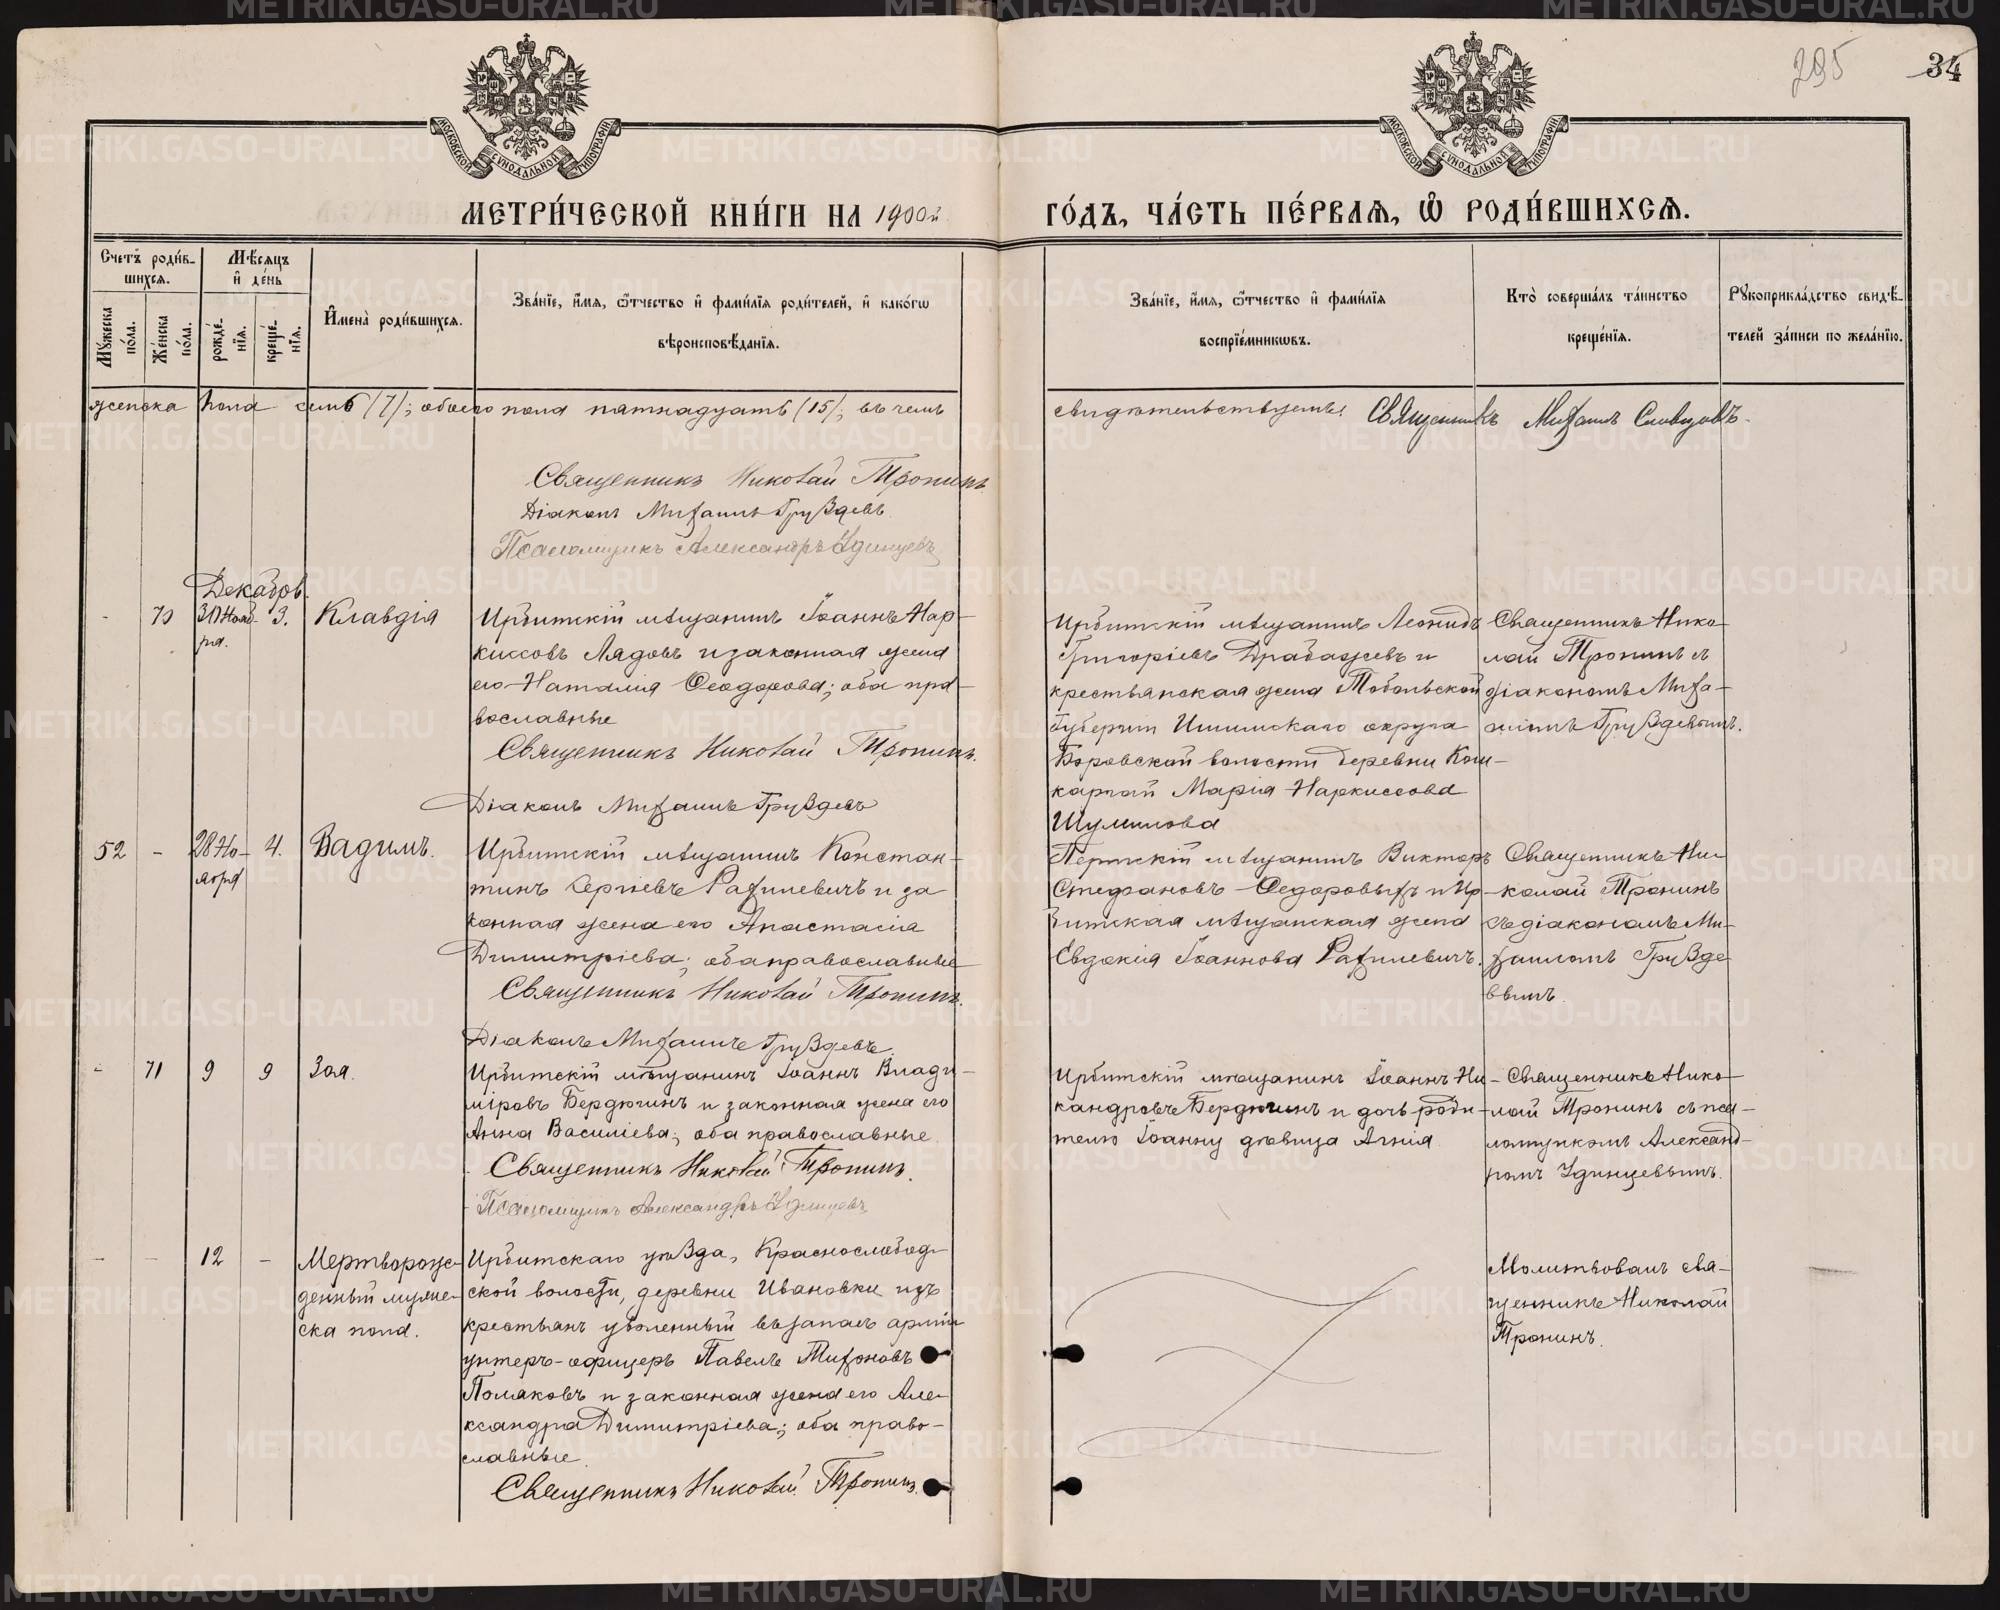 295
34
МОСКОВСКОЙ СѴНОДАЛЬНОЙ ТИПОГРАФІИ
МОСКОВСКОЙ СѴНОДАЛЬНОЙ ТИПОГРАФІИ
МЕТРИ́ЧЕСКОЙ КНИ́ГИ НА 1900й
ГО́ДЪ, ЧА́СТЬ ПЕ́РВАЯ, Ѽ РОДИ́ВШИХСЯ.
Счетъ роди́в-
шихся.
Мѣсяцъ
и́ де́нь
Му́жеска по́ла.
Же́нска по́ла.
рожде́-нїя.
креще́-нїя.
И҆мена̀ роди́вшихся.
Зва́нїе, и҆́мя, ѻ҆́тчество и҆ фами́лїя роди́телей, и҆ како́гѡ
вѣроисповѣ́данїя.
Зва́нїе, и҆́мя, ѻ҆́тчество и҆ фами́лїя
воспрїе́мникѡвъ.
Кто̀ соверша́лъ та́инство
креще́нїя.
Рꙋкоприкла́дство свидѣ́-
телей за́писи по жела́нїю.
женска пола семь (7); обоего пола пятнадцать (15); въ чемъ
свидѣтельствуемъ: Священникъ Михаилъ Словцовъ.
Священникъ Николай Тронинъ
Діаконъ Михаилъ Груздевъ
Псаломщикъ Александръ Удинцевъ
Декабрь.
- 70 30 Нояб-ря. 3. Клавдія
Ирбитскій мѣщанинъ Іоаннъ Нар-
киссовъ Лядовъ и законная жена
его Наталія Ѳеодорова; оба пра-
вославные
Священникъ Николай Тронинъ.
Діаконъ Михаилъ Груздевъ
Ирбитскій мѣщанинъ Леонидъ
Григоріевъ Драбажевъ и
крестьянская жена Тобольской
губерніи Ишимскаго округа
Боровской волости деревни Кош-
карлей Марія Наркиссова
Шумилова
Священникъ Нико-
лай Тронинъ съ
діакономъ Миха-
иломъ Груздевымъ.
52 - 28 Но-ября 4. Вадимъ.
Ирбитскій мѣщанинъ Констан-
тинъ Сергіевъ Рахилевичъ и за
конная жена его Анастасія
Димитріева; оба православные
Священникъ Николай Тронинъ.
Діаконъ Михаилъ Груздевъ
Пермскій мѣщанинъ Викторъ
Стефановъ Ѳедоровыхъ и Ир-
битская мѣщанская жена
Евдокія Іоаннова Рахилевичъ.
Священникъ Ни-
колай Тронинъ
съ діакономъ Ми-
хаиломъ Грузде
вымъ.
- 71 9 9 Зоя.
Ирбитскій мѣщанинъ Іоаннъ Влади-
міровъ Бердюгинъ и законная жена его
Анна Василіева; оба православные.
Священникъ Николай Тронинъ.
Псаломщикъ Александръ Удинцевъ
Ирбитскій мѣщанинъ Іоаннъ Ни-
кандровъ Бердюгинъ и дочь роди-
телю Іоанну дѣвица Агнія
Священникъ Нико-
лай Тронинъ съ пса-
ломщикомъ Александ-
ромъ Удинцевымъ.
- - 12 - Мертворож-
денный муже-
ска пола.
Ирбитскаго уѣзда, Краснослобод-
ской волости, деревни Ивановки изъ
крестьянъ уволенный въ запасъ арміи
унтеръ-офицеръ Павелъ Тихоновъ
Поляковъ и законная жена его Але-
ксандра Димитріева; оба право-
славные.
Священникъ Николай Тронинъ.
Молитвовалъ свя-
щенникъ Николай
Тронинъ.
METRIKI.GASO-URAL.RU